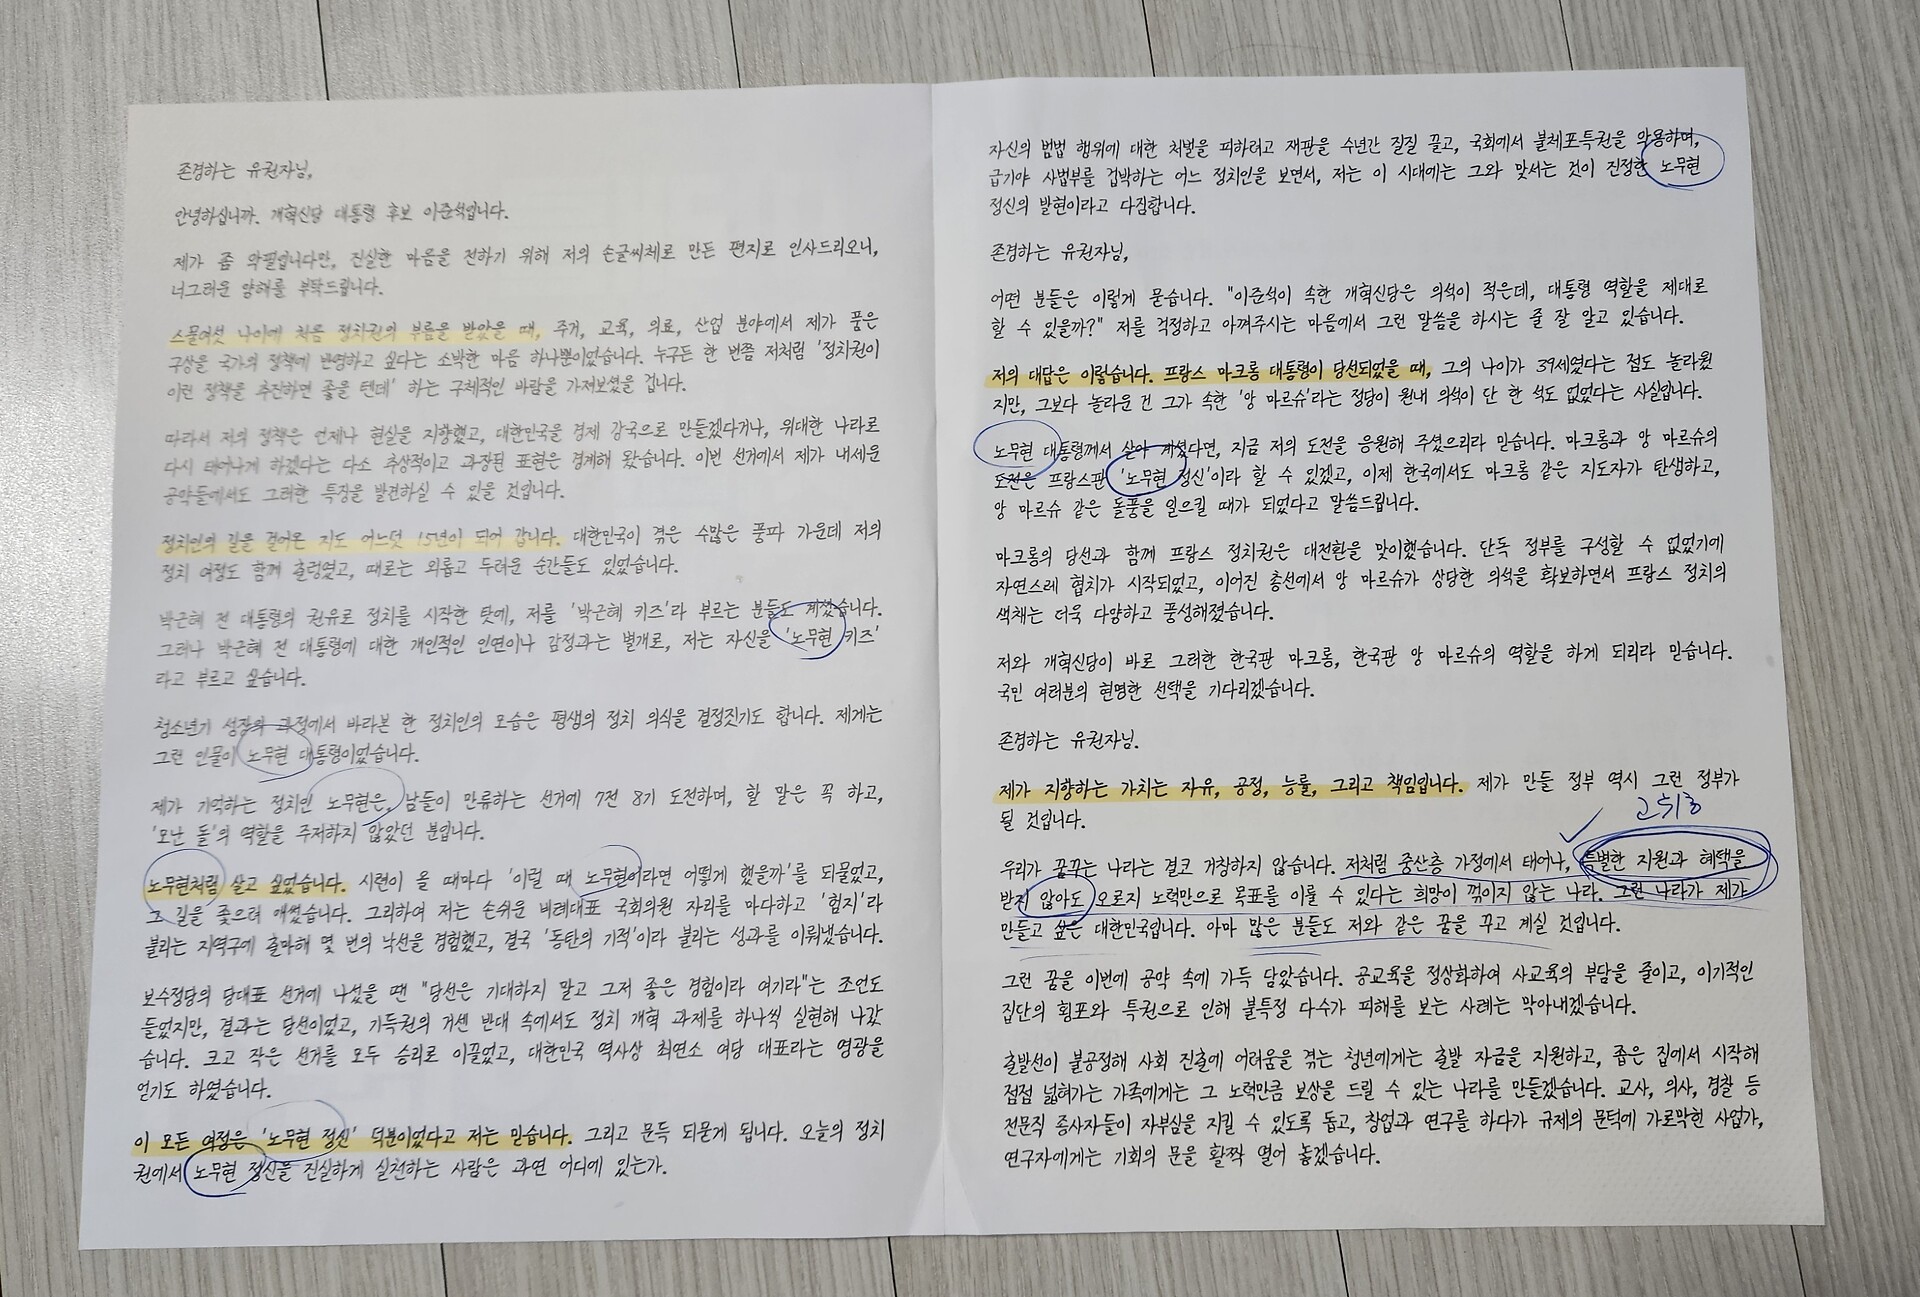 존경하는 유권자님,
안녕하십니까. 개혁신당 대통령 후보 이준석입니다.
제가 좀 악필입니다만, 진실한 마음을 전하기 위해 저의 손글씨체로 만든 편지로 인사드리오니,
너그러운 양해를 부탁드립니다.
스물여섯 나이에 처음 정치권의 부름을 받았을 때, 주거, 교육, 의료, 산업 분야에서 제가 품은
구상을 국가의 정책에 반영하고 싶다는 소박한 마음 하나뿐이었습니다. 누구든 한 번쯤 저처럼 '정치권이
이런 정책을 추진하면 좋을 텐데' 하는 구체적인 바람을 가져보셨을 겁니다.
따라서 저의 정책은 언제나 현실을 지향했고, 대한민국을 경제 강국으로 만들겠다거나, 위대한 나라로
다시 태어나게 하겠다는 다소 추상적이고 과장된 표현은 경계해 왔습니다. 이번 선거에서 제가 내세운
공약들에서도 그러한 특징을 발견하실 수 있을 것입니다.
정치인의 길을 걸어온 지도 어느덧 15년이 되어 갑니다. 대한민국이 겪은 수많은 풍파 가운데 저의
정치 여정도 함께 출렁였고, 때로는 외롭고 두려운 순간들도 있었습니다.
박근혜 전 대통령의 권유로 정치를 시작한 탓에, 저를 '박근혜 키즈'라 부르는 분들도 계셨습니다.
그러나 박근혜 전 대통령에 대한 개인적인 인연이나 감정과는 별개로, 저는 자신을 '노무현 키즈'
라고 부르고 싶습니다.
청소년기 성장의 과정에서 바라본 한 정치인의 모습은 평생의 정치 의식을 결정짓기도 합니다. 제게는
그런 인물이 노무현 대통령이었습니다.
제가 기억하는 정치인 노무현은, 남들이 만류하는 선거에 7전 8기 도전하며, 할 말은 꼭 하고,
'모난 돌'의 역할을 주저하지 않았던 분입니다.
노무현처럼 살고 싶었습니다. 시련이 올 때마다 '이럴 때 노무현이라면 어떻게 했을까'를 되물었고,
그 길을 좇으려 애썼습니다. 그리하여 저는 손쉬운 비례대표 국회의원 자리를 마다하고 '험지'라
불리는 지역구에 출마해 몇 번의 낙선을 경험했고, 결국 '동탄의 기적'이라 불리는 성과를 이뤄냈습니다.
보수정당의 당대표 선거에 나섰을 땐 "당선은 기대하지 말고 그저 좋은 경험이라 여기라"는 조언도
들었지만, 결과는 당선이었고, 기득권의 거센 반대 속에서도 정치 개혁 과제를 하나씩 실현해 나갔
습니다. 크고 작은 선거를 모두 승리로 이끌었고, 대한민국 역사상 최연소 여당 대표라는 영광을
얻기도 하였습니다.
이 모든 여정은 '노무현 정신' 덕분이었다고 저는 믿습니다. 그리고 문득 되묻게 됩니다. 오늘의 정치
권에서 노무현 정신을 진실하게 실천하는 사람은 과연 어디에 있는가.
자신의 범법 행위에 대한 처벌을 피하려고 재판을 수년간 질질 끌고, 국회에서 불체포특권을 악용하며,
급기야 사법부를 겁박하는 어느 정치인을 보면서, 저는 이 시대에는 그와 맞서는 것이 진정한 노무현
정신의 발현이라고 다짐합니다.
존경하는 유권자님,
어떤 분들은 이렇게 묻습니다. "이준석이 속한 개혁신당은 의석이 적은데, 대통령 역할을 제대로
할 수 있을까?" 저를 걱정하고 아껴주시는 마음에서 그런 말씀을 하시는 줄 잘 알고 있습니다.
저의 대답은 이렇습니다. 프랑스 마크롱 대통령이 당선되었을 때, 그의 나이가 39세였다는 점도 놀라웠
지만, 그보다 놀라운 건 그가 속한 '앙 마르슈'라는 정당이 원내 의석이 단 한 석도 없었다는 사실입니다.
노무현 대통령께서 살아 계셨다면, 지금 저의 도전을 응원해 주셨으리라 믿습니다. 마크롱과 앙 마르슈의
도전은 프랑스판 '노무현 정신'이라 할 수 있겠고, 이제 한국에서도 마크롱 같은 지도자가 탄생하고,
앙 마르슈 같은 돌풍을 일으킬 때가 되었다고 말씀드립니다.
마크롱의 당선과 함께 프랑스 정치권은 대전환을 맞이했습니다. 단독 정부를 구성할 수 없었기에
자연스레 협치가 시작되었고, 이어진 총선에서 앙 마르슈가 상당한 의석을 확보하면서 프랑스 정치의
색채는 더욱 다양하고 풍성해졌습니다.
저와 개혁신당이 바로 그러한 한국판 마크롱, 한국판 앙 마르슈의 역할을 하게 되리라 믿습니다.
국민 여러분의 현명한 선택을 기다리겠습니다.
존경하는 유권자님.
제가 지향하는 가치는 자유, 공정, 능률, 그리고 책임입니다. 제가 만들 정부 역시 그런 정부가
될 것입니다.
우리가 꿈꾸는 나라는 결코 거창하지 않습니다. 저처럼 중산층 가정에서 태어나, 특별한 지원과 혜택을
받지 않아도 오로지 노력만으로 목표를 이룰 수 있다는 희망이 꺾이지 않는 나라. 그런 나라가 제가
만들고 싶은 대한민국입니다. 아마 많은 분들도 저와 같은 꿈을 꾸고 계실 것입니다.
그런 꿈을 이번에 공약 속에 가득 담았습니다. 공교육을 정상화하여 사교육의 부담을 줄이고, 이기적인
집단의 횡포와 특권으로 인해 불특정 다수가 피해를 보는 사례는 막아내겠습니다.
출발선이 불공정해 사회 진출에 어려움을 겪는 청년에게는 출발 자금을 지원하고, 좁은 집에서 시작해
점점 넓혀가는 가족에게는 그 노력만큼 보상을 드릴 수 있는 나라를 만들겠습니다. 교사, 의사, 경찰 등
전문직 종사자들이 자부심을 지킬 수 있도록 돕고, 창업과 연구를 하다가 규제의 문턱에 가로막힌 사업가,
연구자에게는 기회의 문을 활짝 열어 놓겠습니다.